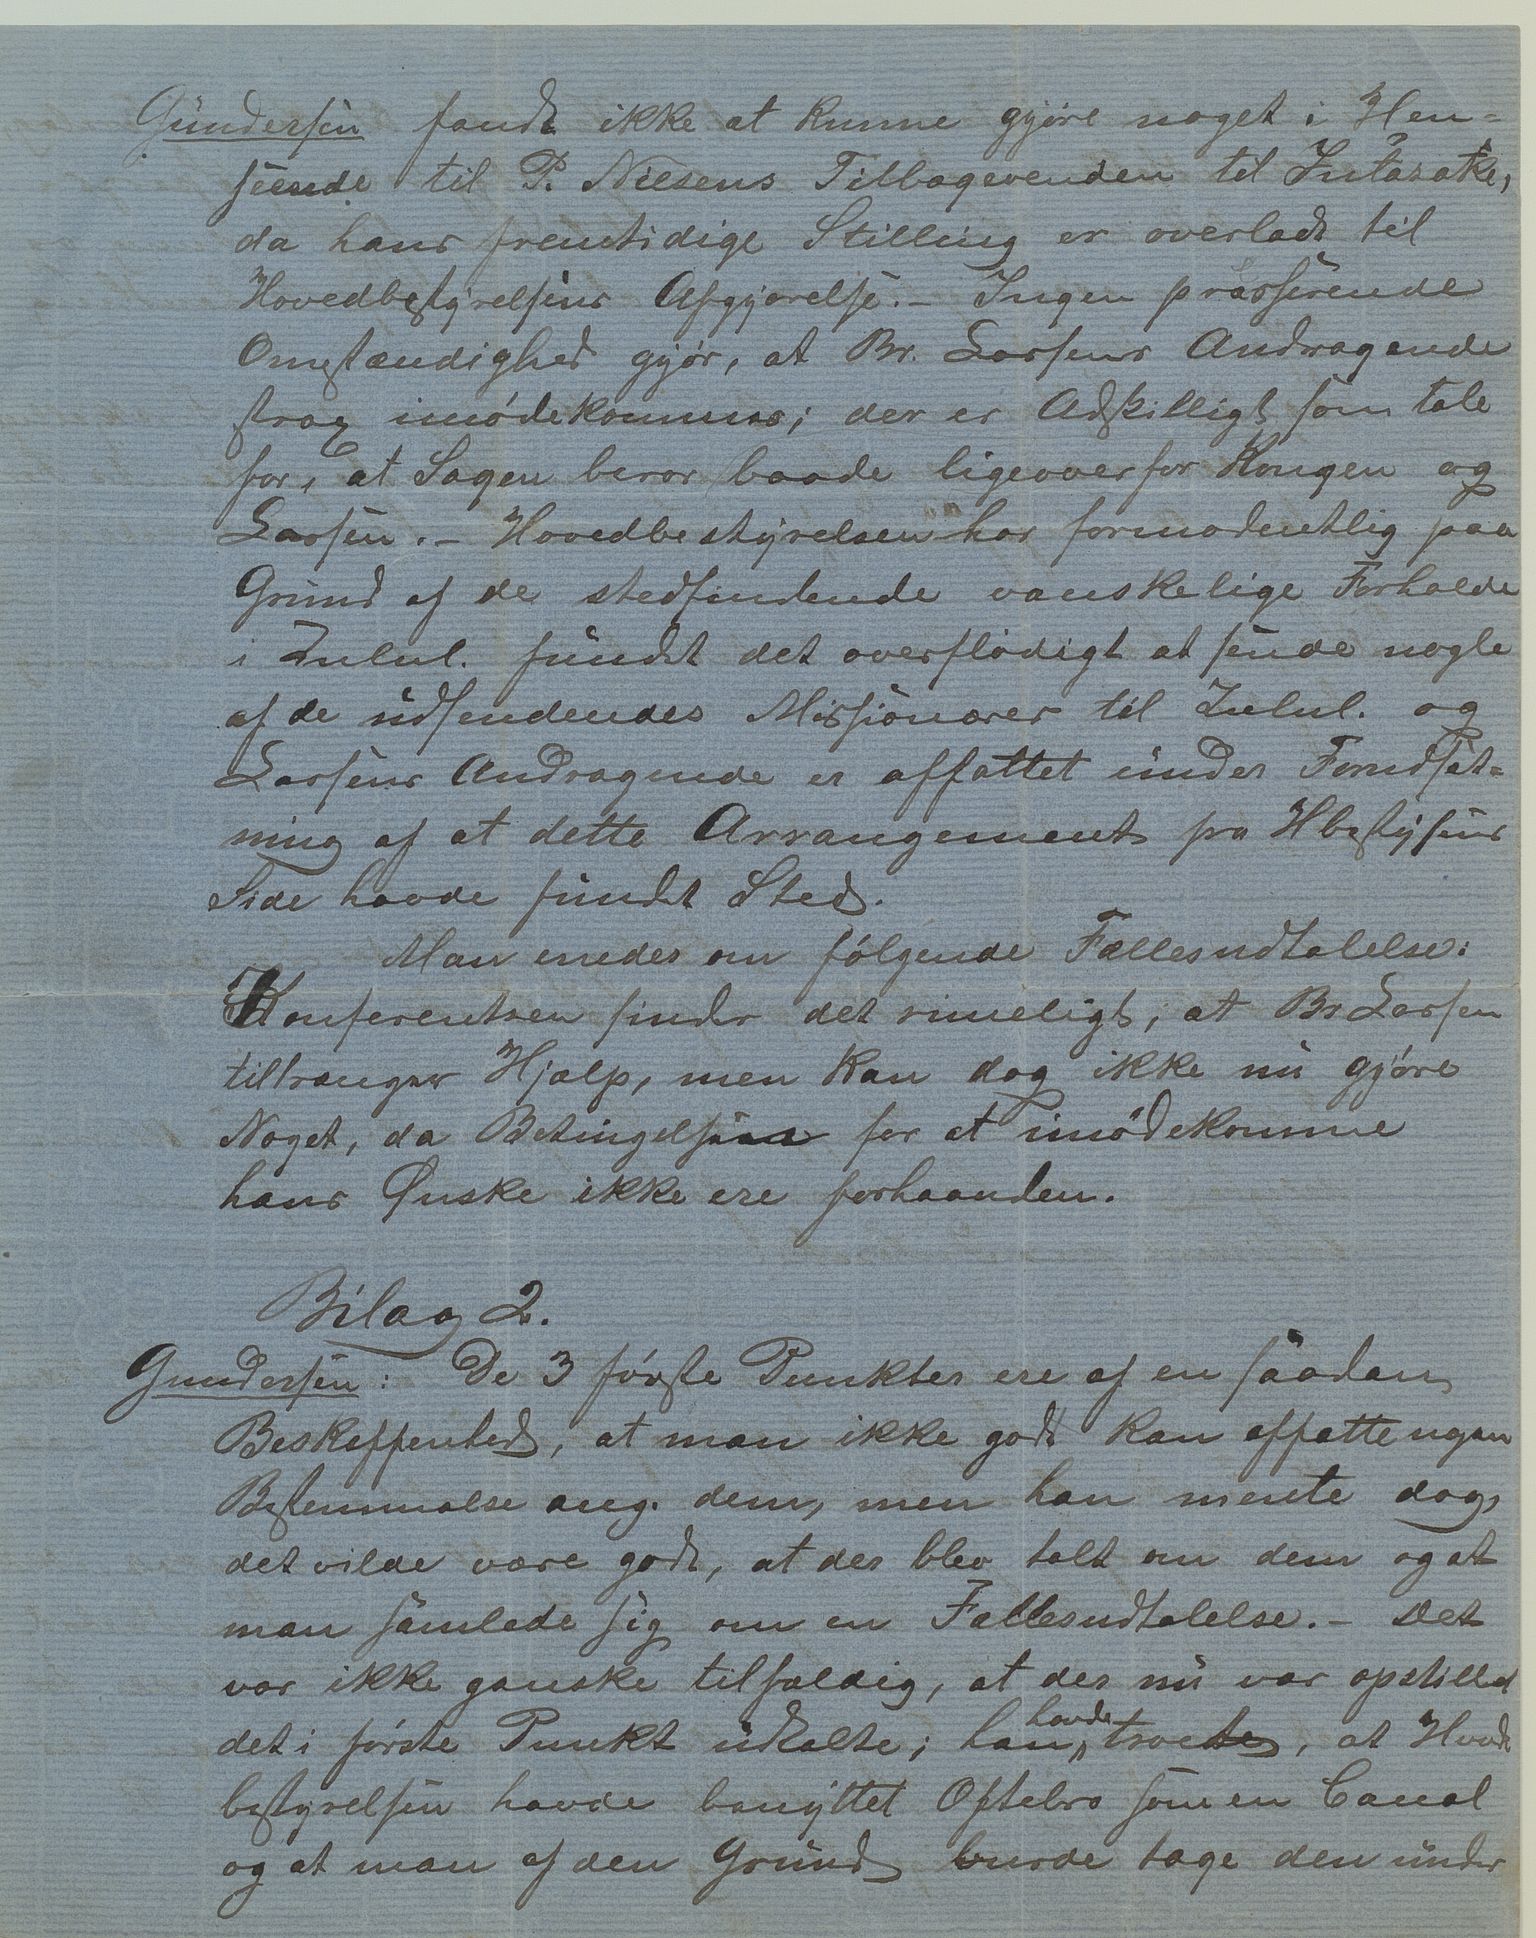 Gundersen fandt ikke at kunne gjøre noget i Hen-
seende til P. Nilsens Tilbagevenden til Intasate,
da hans fremtidige Stilling er overladt til
Hovedbestyrelsens Afgjørelse. – Ingen prosserende
Omstændighed gjør, at Br. Larsens Andragende
strax imødekommes; der er Adskilligt som tale
for, at Sagen beror baade ligeoverfor Kongen og
Larsen. – Hovedbestyrelsen har formodentlig paa
Grund af de stedfindende vanskelige Forholde
i Zulul. fundet det overflødigt at sende nogle
af de udsendendes Missionærer til Zulul. og
Larsens Andragende er affattet under Forudsæt-
ning af at dette Arrangement fra Hbestysens
Side havde fundet Sted.
Man enedes om følgende Fællesudtalelse:
Konferentsen finder det rimeligt, at Br Larsen
tiltrænger Hjælp, men kan dog ikke nu gjøre
Noget, da Betingelserne for at imødekomme
hans Ønske ikke ere forhaanden.
Bilag 2.
Gundersen: De 3 første Punkter ere af en saadan
Beskaffenhed, at man ikke godt kan affatte nogen
Bestemmelse ang. dem, men han mente dog,
det vilde være godt, at der blev talt om dem og at
man samlede sig om en Fællesudtalelse. – Det
var ikke ganske tilfældig, at der nu var opstillet
det i første Punkt udtalte; han havde troet, at Hoved
bestyrelsen havde benyttet Oftebro som en Canal
og at man af den Grund burde tage den under